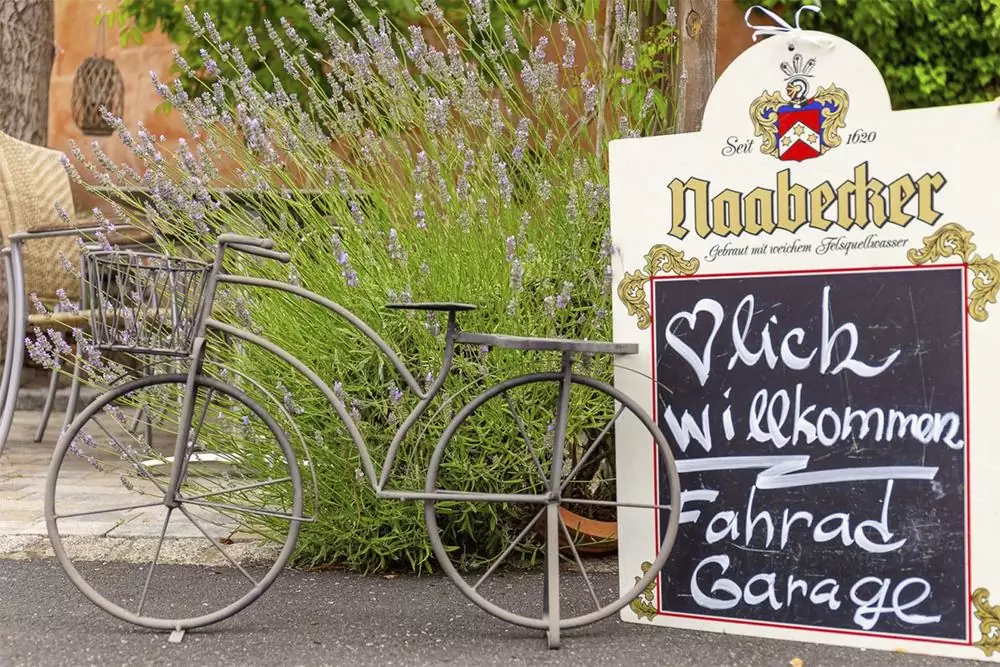 Seit 1620
Naabecker
Gebraut mit weichem Felsquellwasser
♡lich
willkommen
Fahrrad
Garage